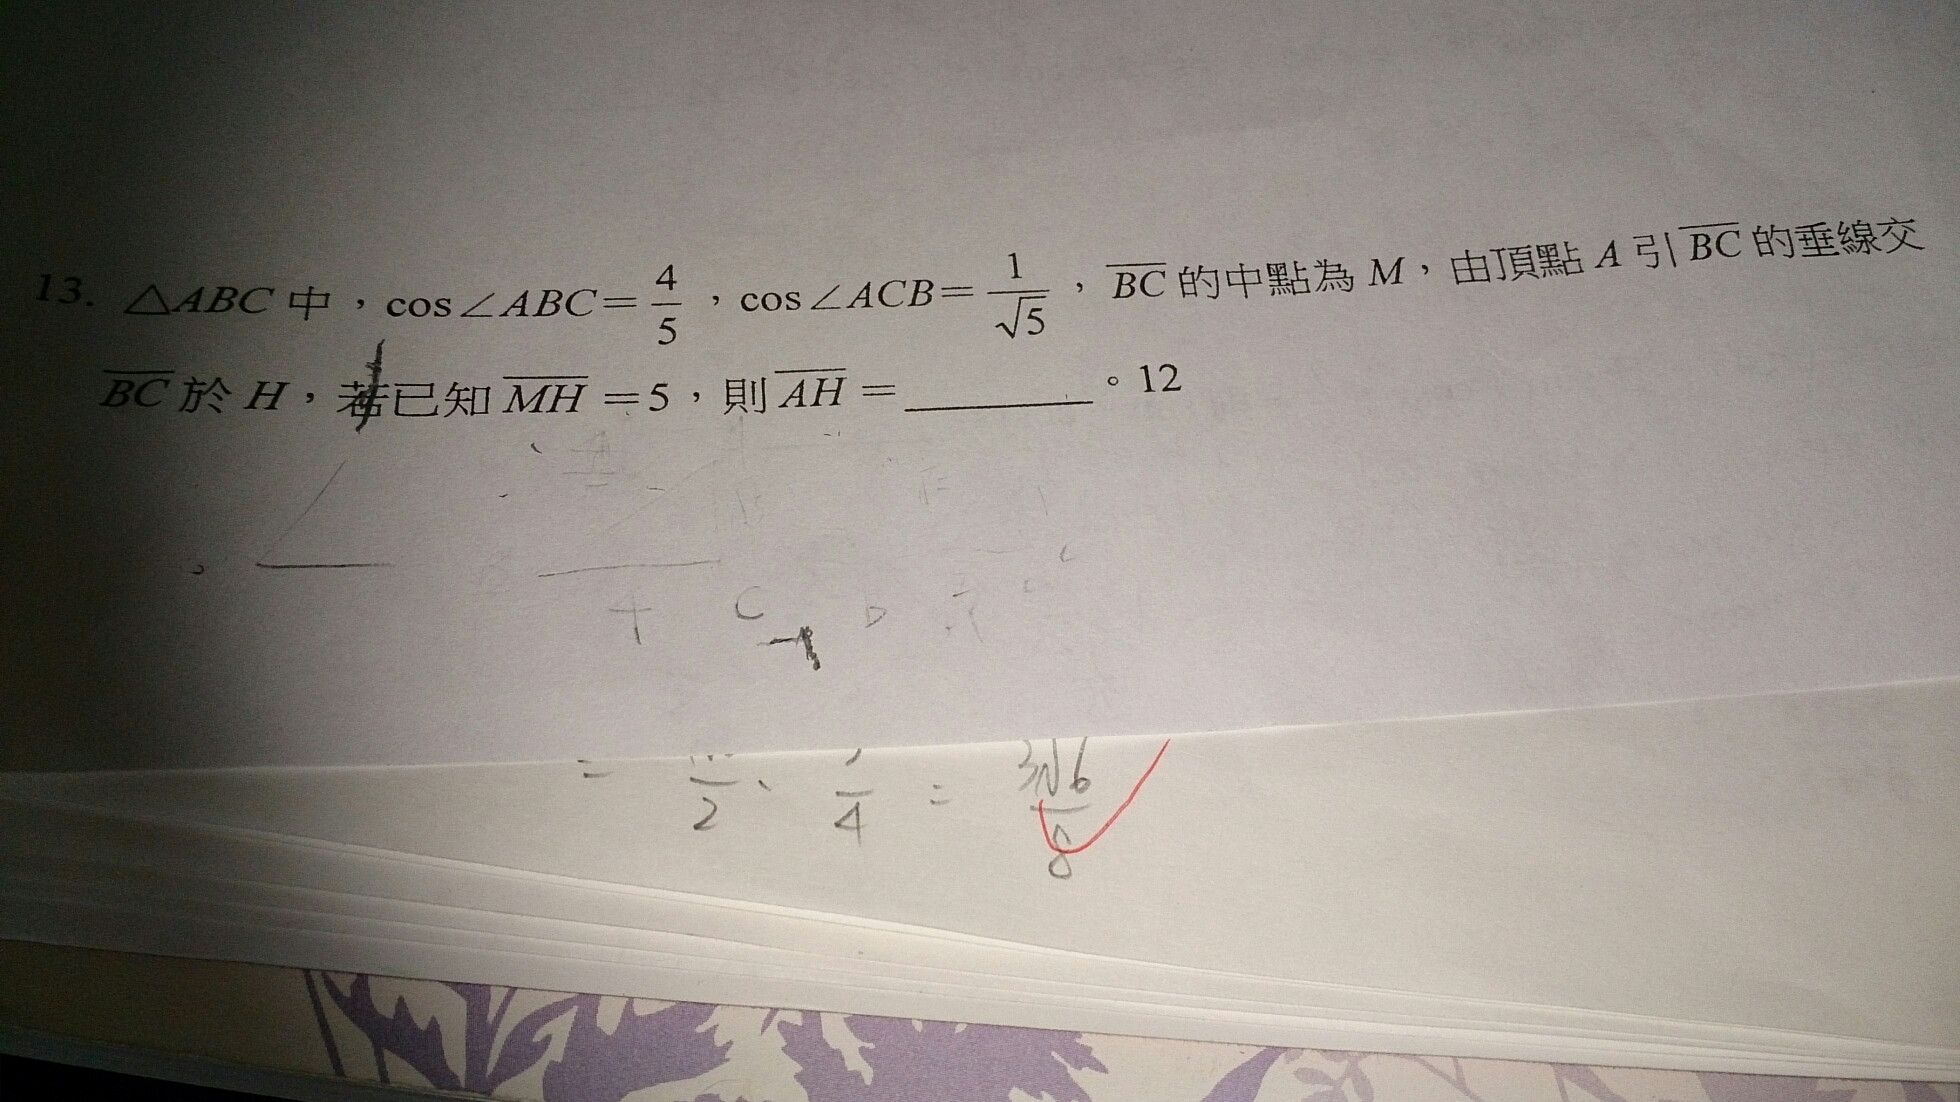 13. △ABC 中，cos∠ABC=4/5，cos∠ACB=1/√5，BC 的中點為 M，由頂點 A 引 BC 的垂線交
BC 於 H，若已知 MH=5，則 AH=________。12
4 C D
= /2 、 /4 = 3√6/8